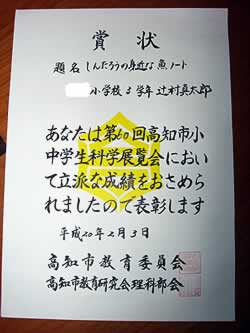 賞状
題名 しんたろうの身近な魚ノート
小学校3学年 辻村真太郎
あなたは第60回高知市小
中学生科学展覧会におい
て立派な成績をおさめら
れましたので表彰します
平成20年2月3日
高知市教育委員会
高知市教育研究会理科部会